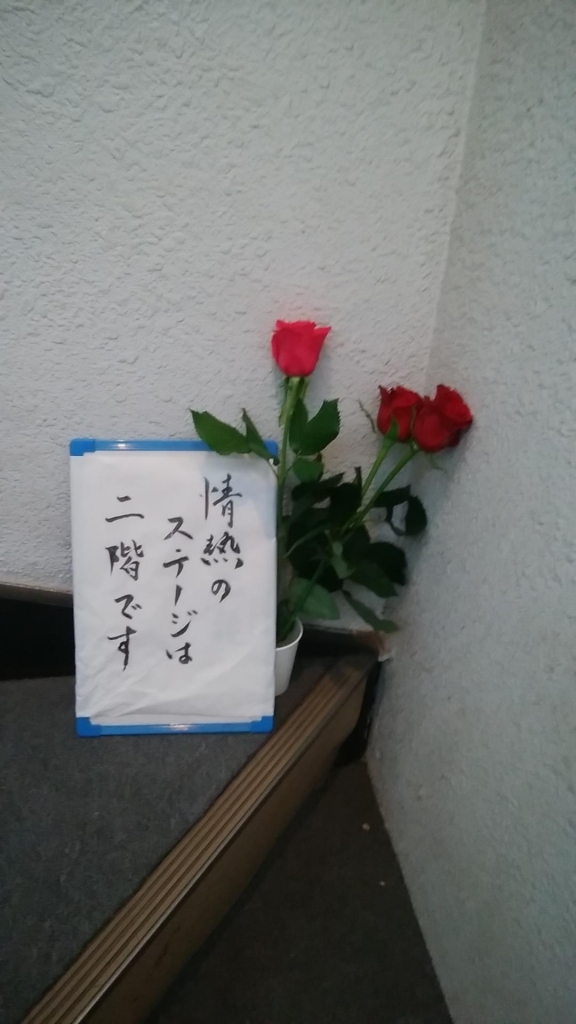 情熱の
ステージは
二階です